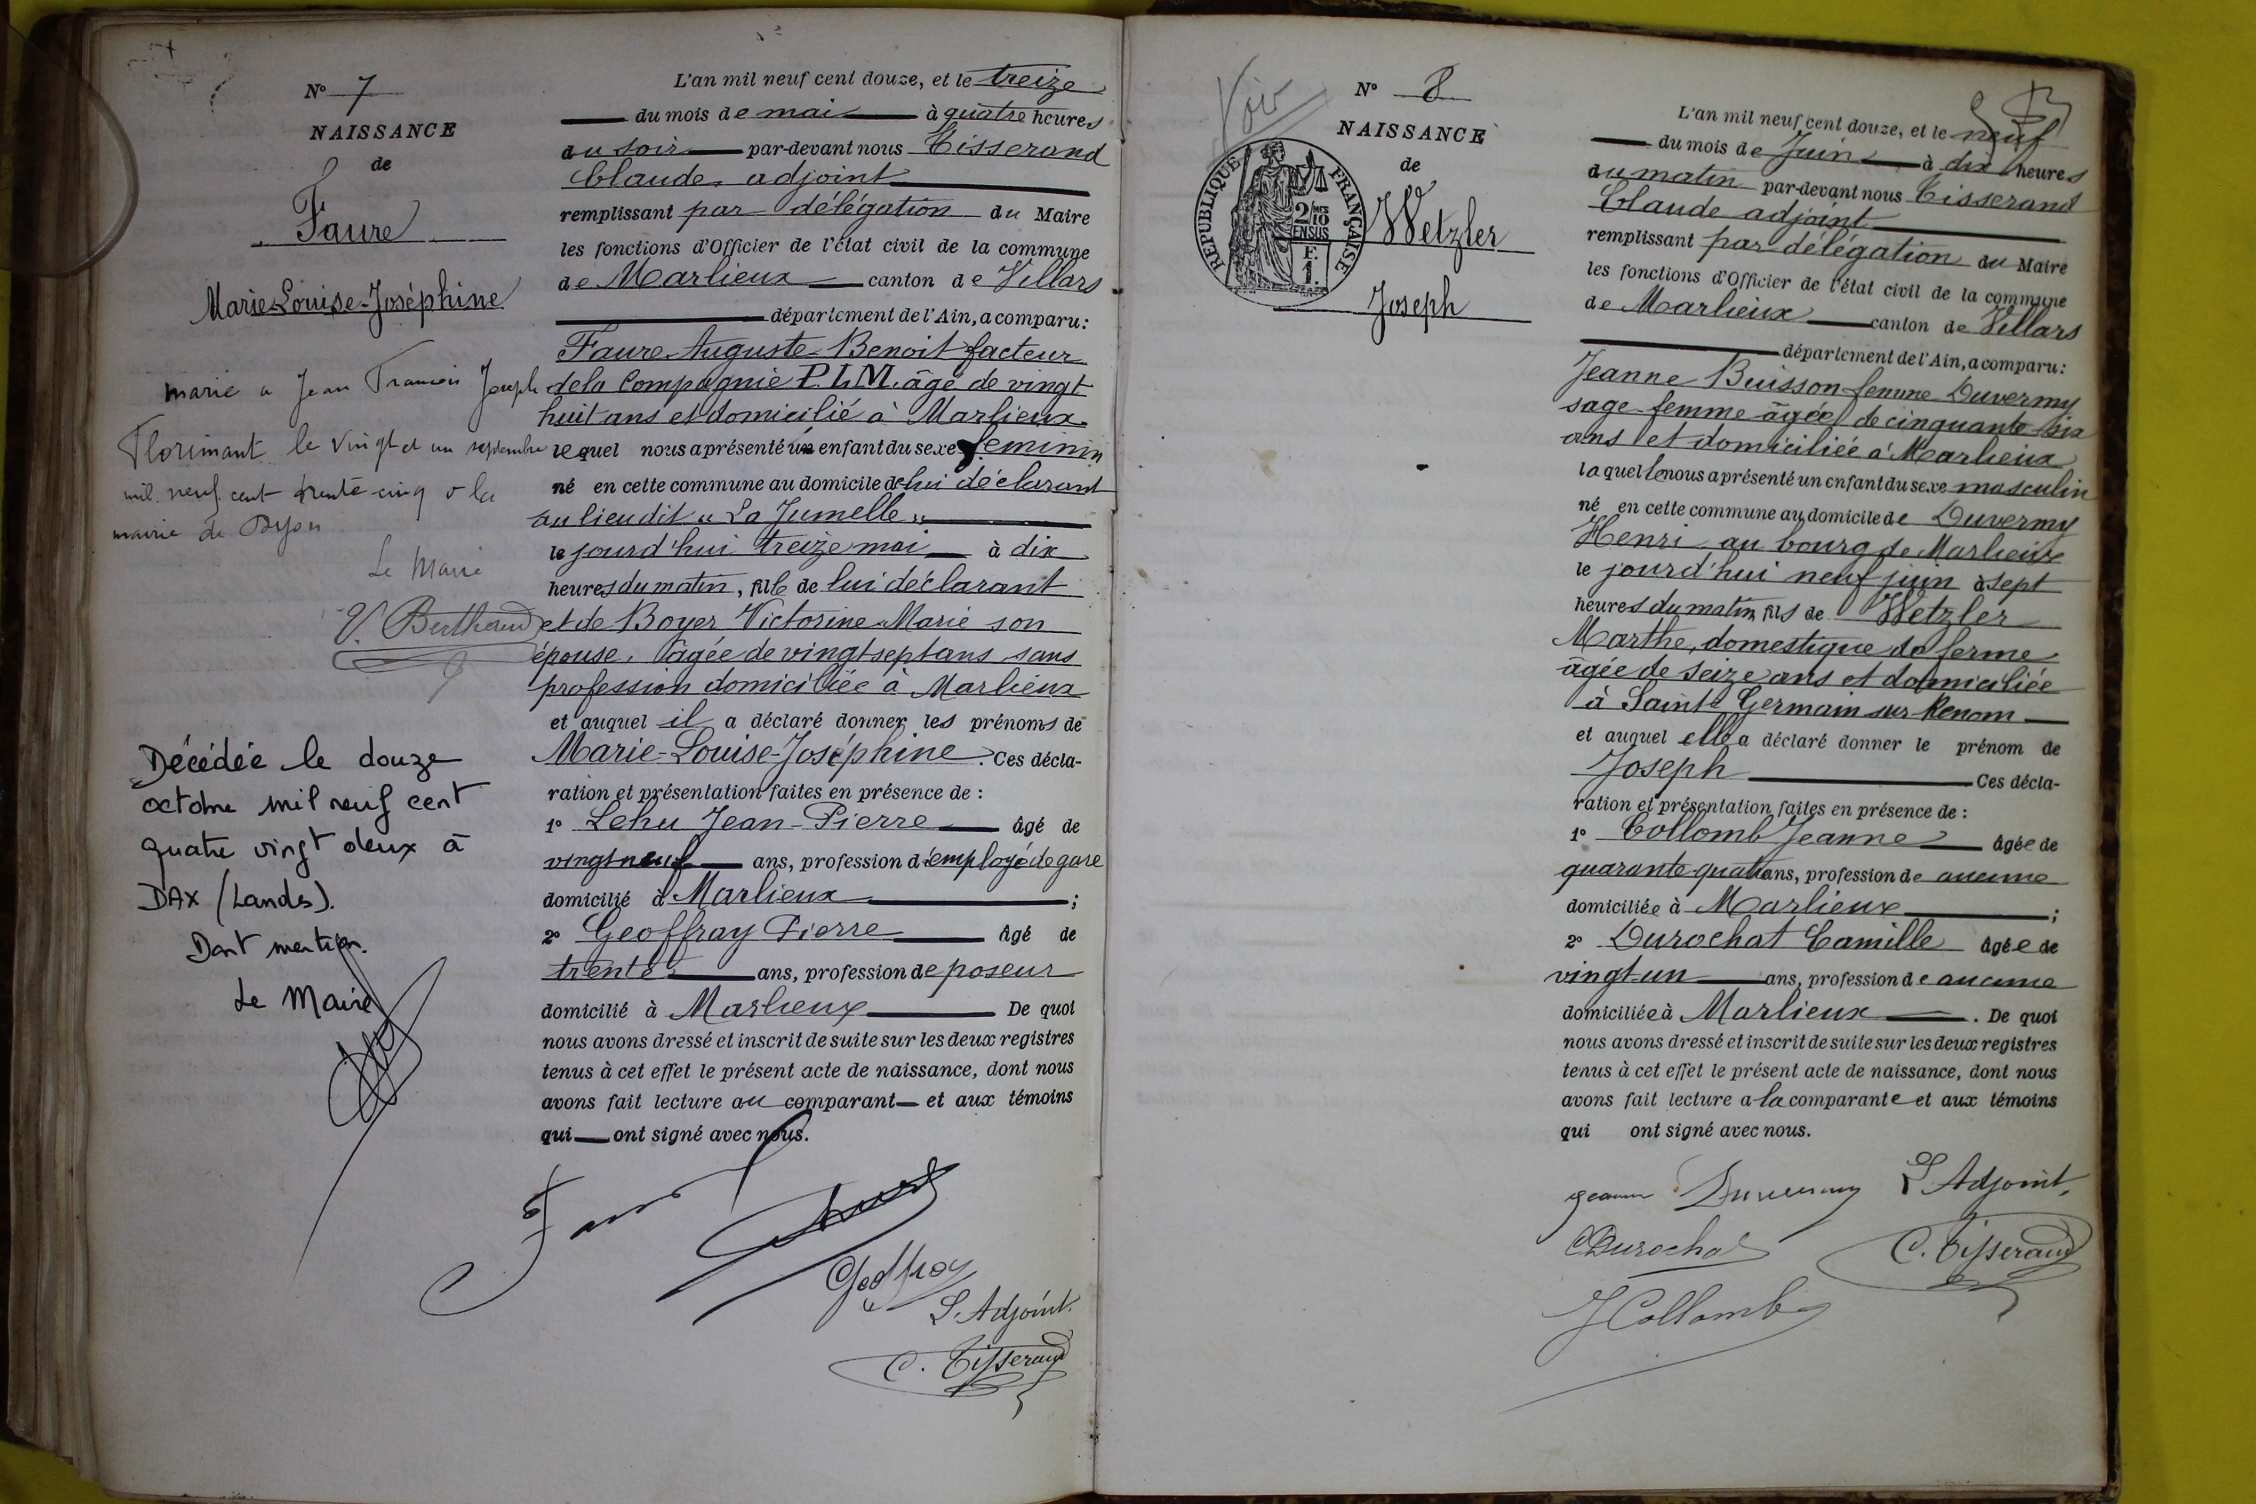 N° 7
NAISSANCE
de
Faure
Marie-Louise-Joséphine
marié a Jean Francois Joseph
Florimant le vingt et un septembre
mil neuf cent trente cinq à la
mairie de Dijon
Le Maire
V. Berthaud
Décédée le douze
octobre mil neuf cent
quatre vingt deux à
DAX (Landes).
Dont mention.
Le Maire
L'an mil neuf cent douze, et le treize
du mois de mai à quatre heures
du soir par-devant nous Tisserand
Claude, adjoint
remplissant par délégation du Maire
les fonctions d'Officier de l'état civil de la commune
de Marlieux canton de Villars
département de l'Ain, a comparu:
Faure Auguste-Benoit facteur
de la Compagnie P.L.M. âgé de vingt
huit ans et domicilié à Marlieux
lequel nous a présenté un enfant du sexe feminin
né en cette commune au domicile de lui déclarant
au lieu dit « La Jumelle »
le jourd'hui treize mai à dix
heures du matin, fille de lui déclarant
et de Boyer Victorine Marie son
épouse, âgée de vingt sept ans sans
profession domiciliée à Marlieux
et auquel il a déclaré donner les prénoms de
Marie-Louise-Joséphine. Ces décla-
ration et présentation faites en présence de :
1° Lehu Jean-Pierre âgé de
vingt neuf ans, profession d'employé de gare
domicilié à Marlieux ;
2° Geoffray Pierre âgé de
trente ans, profession de poseur
domicilié à Marlieux De quoi
nous avons dressé et inscrit de suite sur les deux registres
tenus à cet effet le présent acte de naissance, dont nous
avons fait lecture au comparant et aux témoins
qui ont signé avec nous.
Geoffroy
L'Adjoint.
C. Tisserand
Voir
N° 8
NAISSANCE
de
RÉPUBLIQUE FRANÇAISE
2/10 MES
EN SUS
F.
1.
Wetzler
Joseph
L'an mil neuf cent douze, et le neuf
du mois de Juin à dix heures
du matin par-devant nous Tisserand
Claude adjoint
remplissant par délégation du Maire
les fonctions d'Officier de l'état civil de la commune
de Marlieux canton de Villars
département de l'Ain, a comparu:
Jeanne Buisson femme Duvermy
sage-femme âgée de cinquante-six
ans et domiciliée à Marlieux
laquelle nous a présenté un enfant du sexe masculin
né en cette commune au domicile de Duvermy
Henri au bourg de Marlieux
le jourd'hui neuf juin à sept
heures du matin, fils de Wetzler
Marthe, domestique de ferme
âgée de seize ans et domiciliée
à Saint Germain sur Renom
et auquel elle a déclaré donner le prénom de
Joseph Ces décla-
ration et présentation faites en présence de :
1° Collomb Jeanne âgée de
quarante-quatre ans, profession de aucune
domiciliée à Marlieux ;
2° Durochat Camille âgée de
vingt-un ans, profession de aucune
domiciliée à Marlieux . De quoi
nous avons dressé et inscrit de suite sur les deux registres
tenus à cet effet le présent acte de naissance, dont nous
avons fait lecture a la comparante et aux témoins
qui ont signé avec nous.
Jeanne Duvermy L'Adjoint,
C Durochat C. Tisserand
J Collomb